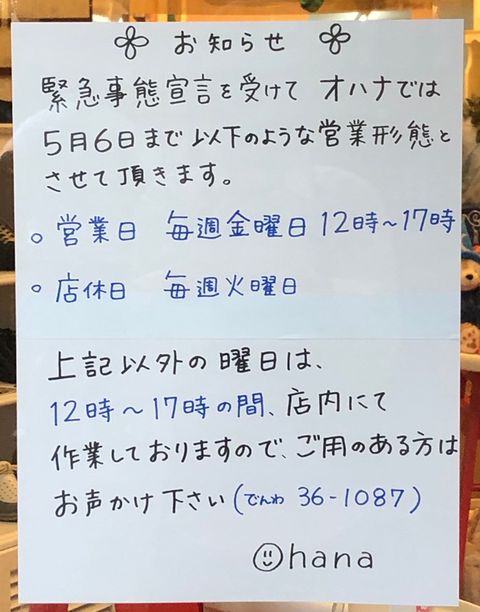 お知らせ
緊急事態宣言を受けて オハナでは
5月6日まで以下のような営業形態と
させて頂きます。
○ 営業日 毎週金曜日 12時〜17時
○ 店休日 毎週火曜日
上記以外の曜日は、
12時〜17時の間、店内にて
作業しておりますので、ご用のある方は
お声かけ下さい(でんわ 36-1087)
Ohana